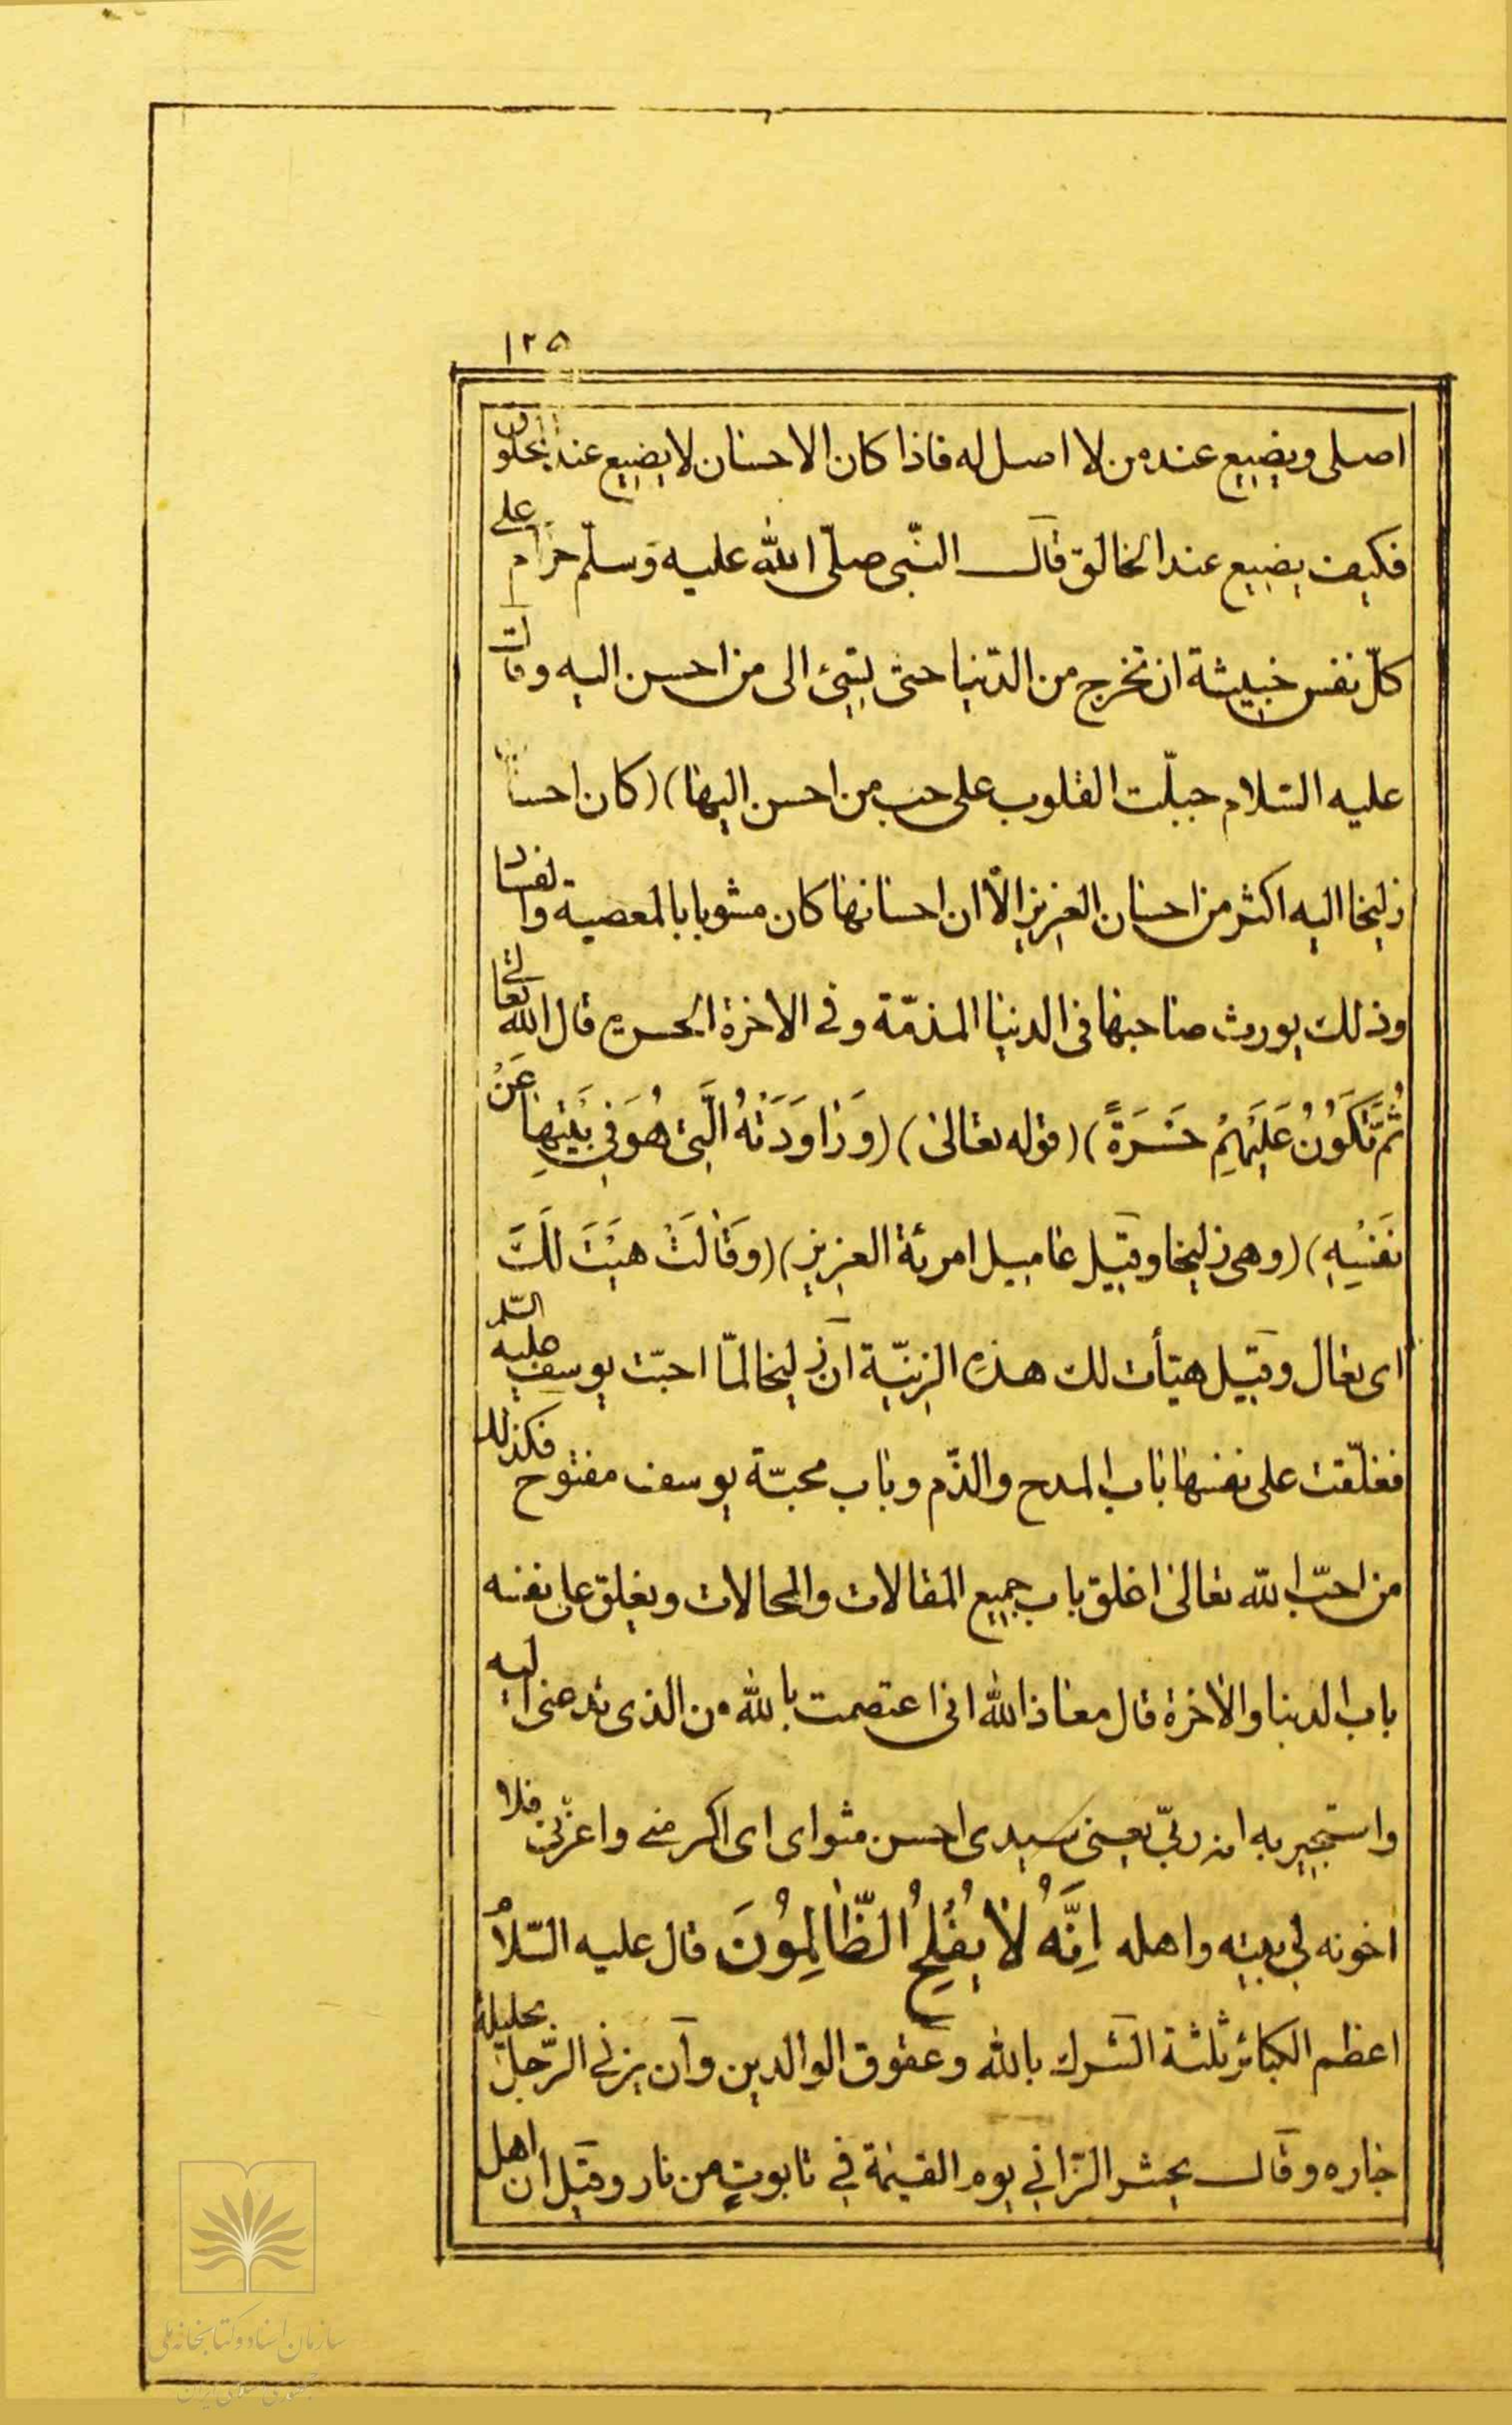 ١٢٥
اصلی ویضیع عنده من لا اصل له فاذا کان الاحسان لا یضیع عند المخلوق
فکیف یضیع عند الخالق قال النّبی صلّی الله علیه وسلّم حرام علی
کلّ نفس خبیثة ان تخرج من الدّنیا حتی یسیئ الی من احسن الیه وقال
علیه السّلام جبلّت القلوب علی حب من احسن الیها) (کان احسان
زلیخا الیه اکثر من احسان العزیز الّا ان احسانها کان مشوبا بالمعصیة والفساد
وذلك یورث صاحبها فی الدنیا المذمّة وفی الاخرة الحسرة قال الله تعالی
ثُمَّ تَکُونُ عَلَیْهِمْ حَسْرَةً) (قوله تعالی) (وَرَاوَدَتْهُ الَّتِی هُوَ فِی بَیْتِهَا عَنْ
نَفْسِهِ) (وهی زلیخا وقیل غامیل امرئة العزیز) (وَقَالَتْ هَیْتَ لَكَ
ای تعال وقیل هیّأت لك هذه الزینّة ان زلیخا لمّا احبّت یوسف علیه السّلم
فغلّقت علی نفسها باب المدح والذّم وباب محبّة یوسف مفتوح فکذلك
من احبّ الله تعالی اغلق باب جمیع المقالات والمحالات ویغلق علی نفسه
باب الدنیا والاخرة قال معاذ الله انی اعتصمت بالله من الذی تدعنی الیه
واستجیر به انه ربّی یعنی سیدی احسن مثوای ای اکرمنی واعزّنی فلا
اخونه فی بیته واهله اِنَّهُ لَا یُفْلِحُ الظَّالِمُونَ قال علیه السّلامُ
اعظم الکبائر ثلثة الشرك بالله وعقوق الوالدین وان یزنی الرّجل بحلیلة
جاره وقال یحشر الزّانی یوم القیمة فی تابوتٍ من نار وقیل ان اهل
سازمان اسناد و کتابخانه ملی
جمهوری اسلامی ایران